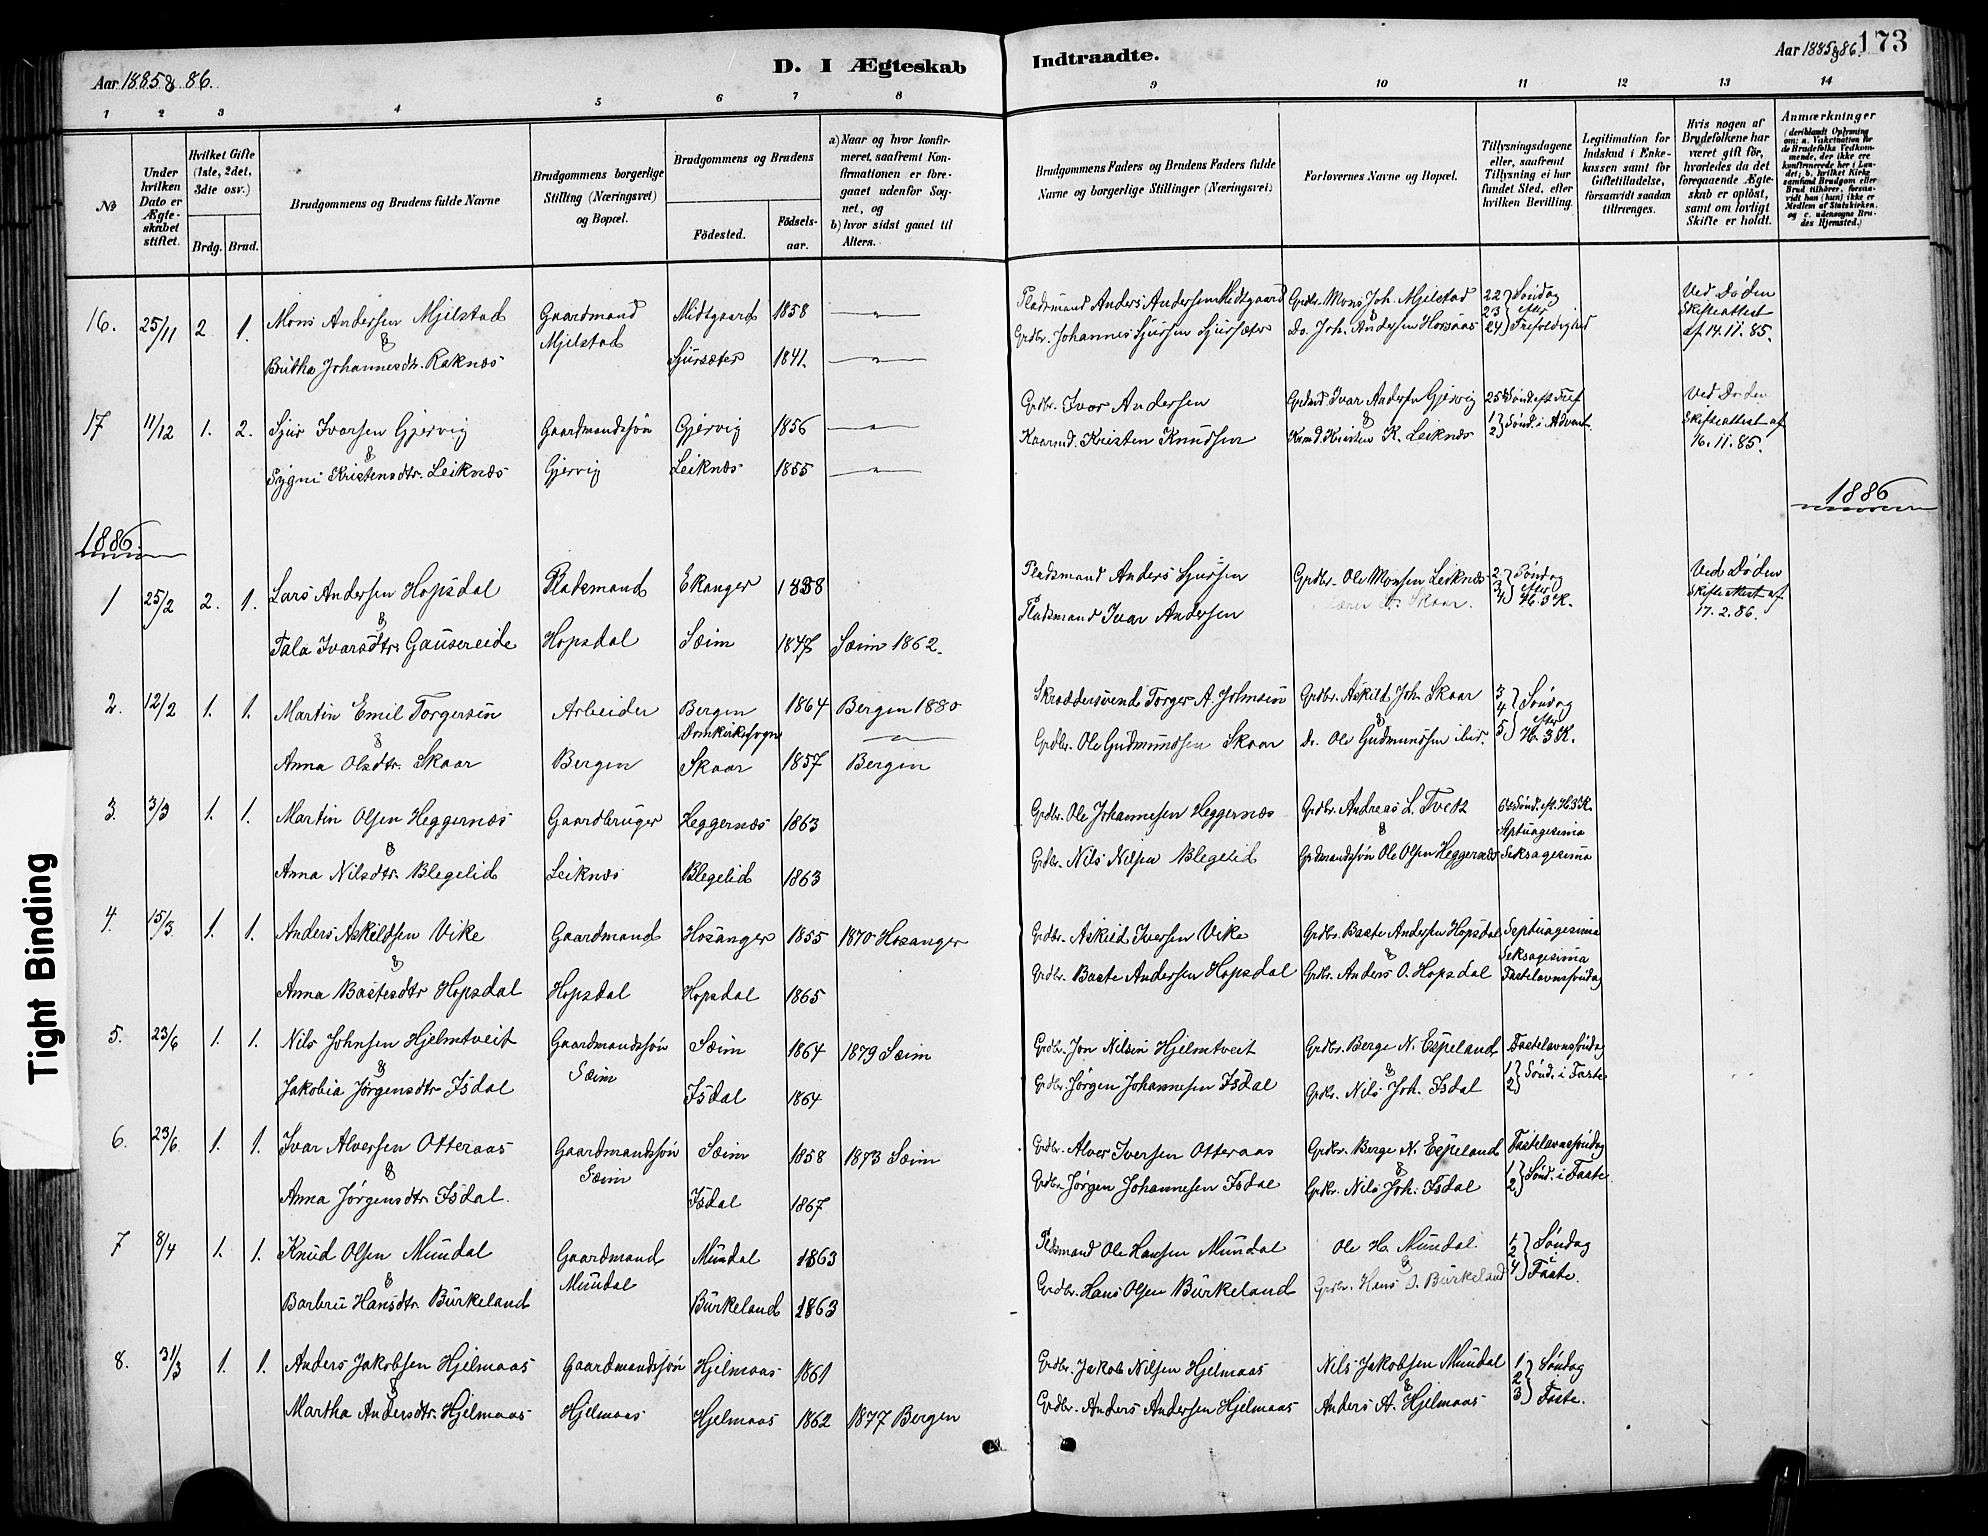 Aar 1885 & 86.
D. I Ægteskab
Indtraadte.
Aar 1885 & 86.
173
1 2 3 4 5 6 7 8
9 10 11 12 13 14
№
Under hvilken Dato er Ægteskabet stiftet.
Hvilket Gifte (1ste, 2det, 3die osv.)
Brdg. Brud.
Brudgommens og Brudens fulde Navne
Brudgommens borgerlige Stilling (Næringsvei) og Bopæl.
Brudgommens og Brudens
Fødested.
Fødselsaar.
a) Naar og hvor konfirmeret, saafremt Konfirmationen er foregaaet udenfor Sognet, og
b) hvor sidst gaaet til Alters.
Brudgommens Faders og Brudens Faders fulde Navne og borgerlige Stillinger (Næringsvei)
Forlovernes Navne og Bopæl.
Tillysningsdagene eller, saafremt Tillysning ei har fundet Sted, efter hvilken Bevilling.
Legitimation for Indskud i Enkekassen samt for Giftetilladelse, forsaavidt saadan tiltrænges.
Hvis nogen af Brudefolkene har været gift før, hvorledes da det foregaaende Ægteskab er opløst, samt om lovligt Skifte er holdt.
Anmærkninger
(deriblandt Oplysning om: a. Vakcination for de Brudefolks Vedkommende, der ikke ere konfirmerede her i Landet; b. hvilket Kirkesamfund Brudgom eller Brud tilhører, forsaavidt han (hun) ikke er Medlem af Statskirken. og c. udensogns Brudes Hjemsted.)
16. 25/11 2. 1. Mons Andersen Mjelstad Gaardmand Midtgaard 1858 — " — Pladsmand Anders Andersen Midtgaard Grdbr. Mons Joh. Mjelstad 22 Søndag Ved Døden
& Mjelstad & 23 efter Skifteattest
Britha Johannesdtr. Raknæs Sjursæter 1841. — " — Grdbr. Johannes Sjursen Sjursæter Do. Joh. Andersen Horsaas 24 Trefoldighed af 14.11.85.
17 11/12 1. 2. Sjur Ivarsen Gjervig Gaardmandssøn Gjervig 1856 — " — Grdbr. Ivar Andersen Grdmd Ivar Andersen Gjervig 25de Sønd. eft. Tref Ved Døden
& & 1 Sønd. i Advent. Skifteattest af
Sygni Kristensdtr. Leiknæs Gjervig Leiknæs 1855 — " — Kaarmd. Kristen Knudsen Krmd. Kristen K. Leiknæs 2 16.11.85.
1886
1886
1 25/2 2. 1. Lars Andersen Hopsdal Pladsmand Ekanger 1838 Pladsmand Anders Sjursen Grdbr. Ole Monsen Leiknæs 2 Søndag Ved Døden
& 3 efter Skifteattest af
Tala Ivarsdtr. Gausereide Hopsdal Sæim 1847 Sæim 1862. Pladsmand Ivar Andersen Skaar. 4 H.3K. 17.2.86.
2. 12/2 1. 1. Martin Emil Torgersen Arbeider Bergen 1864 Bergen 1880 Skræddersvend Torger A. Johnsen Grdbr. Askild Joh. Skaar 3 Søndag
& Domkirkesogn — " — & 4 efter
Anna Olsdtr. Skaar Bergen Skaar 1857 Bergen Grdbr. Ole Gudmundsen Skaar Do. Ole Gudmundsen ibid. 5 H.3K.
3. 3/3 1. 1. Martin Olsen Heggernæs Gaardbruger Heggernæs 1863 Grdbr. Ole Johannesen Heggernæs Grdbr. Andreas L. Tveit 6te Sønd. eft. H3K.
& & Septuagesima
Anna Nilsdtr. Blegelid Leiknæs Blegelid 1863 Grdbr. Nils Nilsen Blegelid Grdmandssøn Ole Olsen Heggernæs Seksagesima
4. 15/3 1. 1. Anders Askildsen Vike Gaardmand Hosanger 1855 1870 Hosanger Grdbr. Askild Iversen Vike Grdbr. Baste Andersen Hopsdal Septuagesima
& & Seksagesima
Anna Bastesdtr Hopsdal Hopsdal Hopsdal 1865 Grdbr. Baste Andersen Hopsdal Grdbr. Anders O. Hopsdal Fastelavnssøndag
5. 23/6 1. 1. Nils Johnsen Hjelmtveit Gaardmandssøn Sæim 1864 1879 Sæim Grdbr. Jon Nilsen Hjelmtveit Grdbr. Berge N. Espeland Fastelavnssøndag
& Sæim & 1 Sønd. i Faste
Jakobia Jørgensdtr Isdal Isdal 1864 Grdbr. Jørgen Johannesen Isdal Grdbr. Nils Joh. Isdal 2
6. 23/6 1. 1. Ivar Alversen Otteraas Gaardmandssøn Sæim 1858 1873 Sæim Grdbr. Alver Iversen Otteraas Grdbr. Berge N. Espeland Fastelavnssøndag
& Sæim & 1 Sønd. i Faste.
Anna Jørgensdtr. Isdal. Isdal 1867 Grdbr. Jørgen Johannesen Isdal Grdbr. Nils Joh. Isdal 2
7 8/4 1. 1. Knud Olsen Mundal Gaardmand Mundal 1863 Pladsmand Ole Hansen Mundal Ole H. Mundal. 1 Søndag
& Mundal & 2 i
Barbru Hansdtr. Burkeland Burkeland 1863 Grdbr. Hans Olsen Burkeland Grdbr. Hans O. Burkeland 4 Faste.
8. 31/3 1. 1. Anders Jakobsen Hjelmaas Gaardmandssøn Hjelmaas 1861 Grdbr. Jakob Nilsen Hjelmaas Nils Jakobsen Mundal 1 Søndag
& & 2 i
Martha Andersdtr. Hjelmaas Hjelmaas Hjelmaas 1862 1877 Bergen Grdbr. Anders Andersen Hjelmaas Anders A. Hjelmaas 3 Faste.
Tight Binding